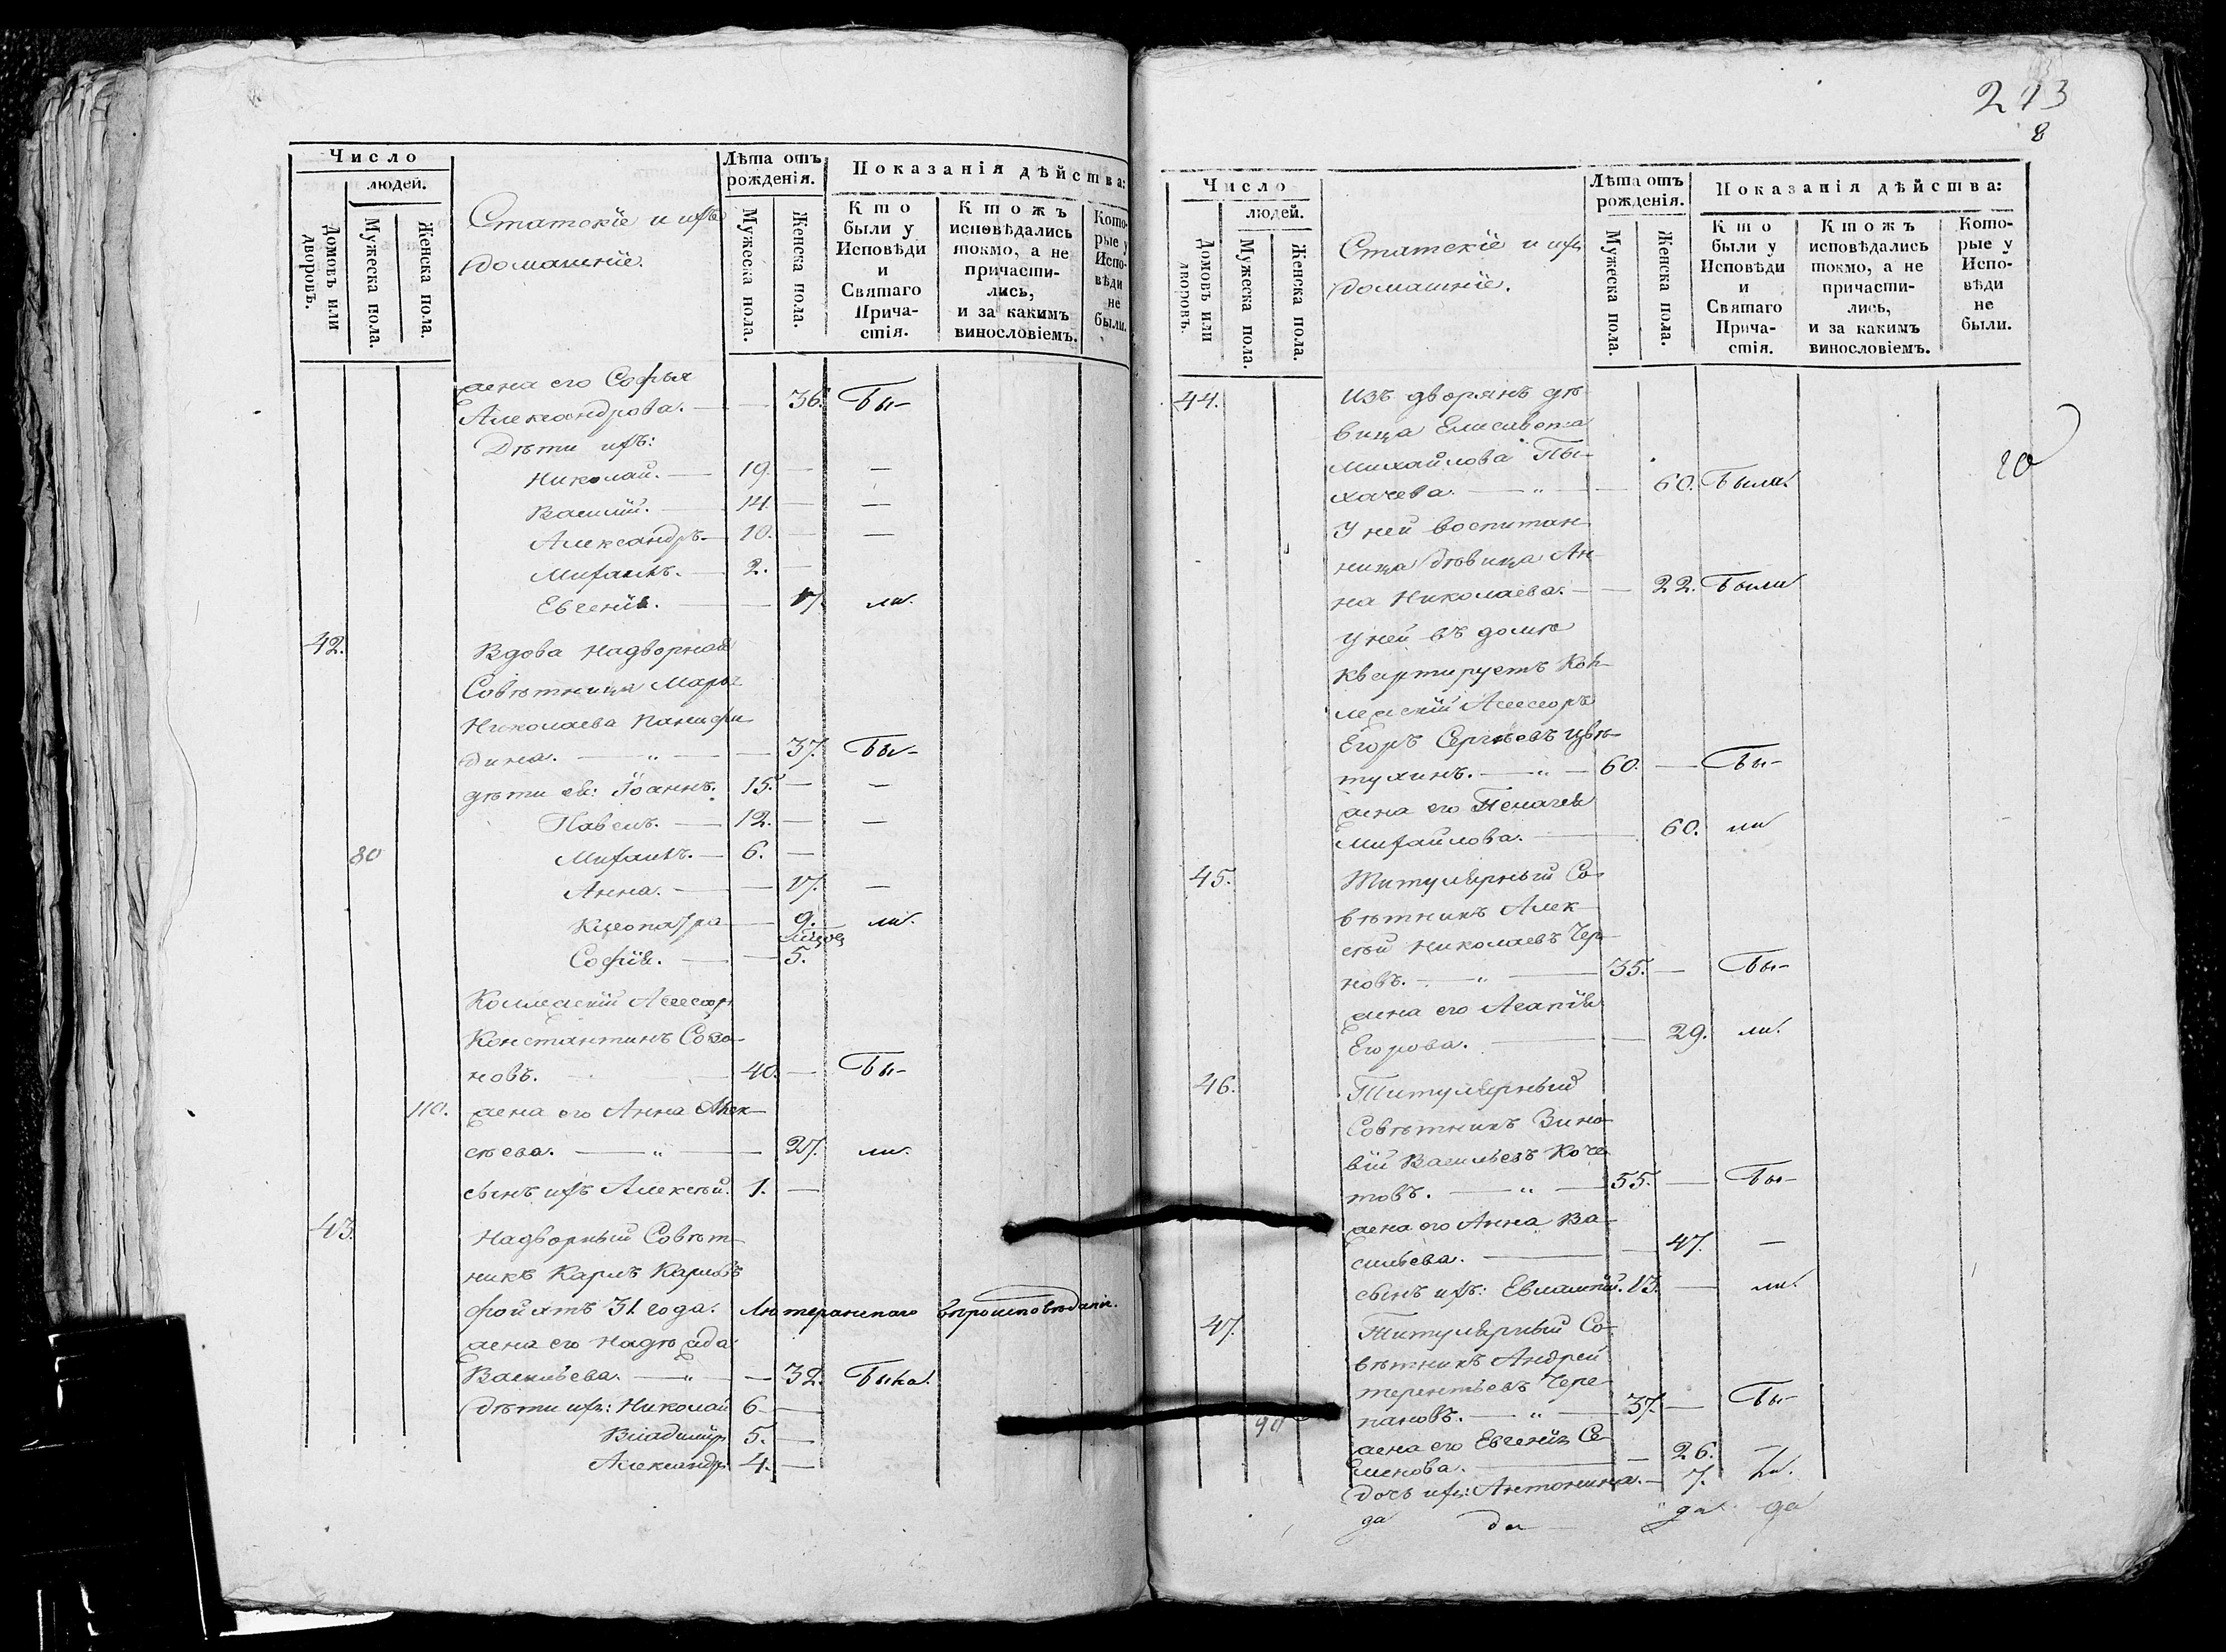 Число
людей.
Домовъ или дворовъ.
Мужеска пола.
Женска пола.
Статскіе и ихъ
домашніе.
Лѣта отъ
рожденія.
Мужеска пола.
Женска пола.
Показанія дѣйства:
Кто
были у
Исповѣди
и
Святаго
Прича-
стія.
Ктожъ
исповѣдались
токмо, а не
причасти-
лись,
и за какимъ
винословіемъ.
Кото-
рые у
Испо-
вѣди
не
были.
жена его Софья
Александрова. 36. Бы-
Дѣти ихъ:
Николай. 19. —
Василій. 14. —
Александръ. 10. —
Михаилъ. 2. —
Евгенія. 17. ли.
42. Вдова Надворная
Совѣтница Марья
Николаева
дина. 37. Бы-
дѣти ея: Іоаннъ. 15. —
Павелъ. 12. —
80 Михаилъ. 6. —
Анна. 17. —
Клеопатра 9. ли.
Софія. 5.
Коллежскій Ассесоръ
Константинъ
новъ. 40. Бы-
110. жена его Анна Алек-
сѣева. 27. ли.
сынъ ихъ Алексѣй. 1. —
43. Надворный Совѣт-
никъ Карлъ Карловъ
фойхтъ 31 года. Лютеранскаго вѣроисповѣданія.
жена его Надѣжда
Васильева. 32. Была.
дѣти ихъ: Николай 6 —
Владимір 5. —
Александръ 4. —
213
8
Число
людей.
Домовъ или дворовъ.
Мужеска пола.
Женска пола.
Статскіе и ихъ
домашніе.
Лѣта отъ
рожденія.
Мужеска пола.
Женска пола.
Показанія дѣйства:
Кто
были у
Исповѣди
и
Святаго
Прича-
стія.
Ктожъ
исповѣдались
токмо, а не
причасти-
лись,
и за какимъ
винословіемъ.
Кото-
рые у
Испо-
вѣди
не
были.
44. Изъ дворянъ дѣ-
вица Елисавета
Михайлова Пы-
хачева. 60. Была.
У ней воспитан-
ница дѣвица Ан-
на Николаева. 22. Была
У ней въ домѣ
квартируетъ Кол-
лежскій Ассесоръ
Егоръ Сергѣевъ Цвѣ-
тухинъ. 60. — Бы-
жена его Пелагея
Михайлова. 60. ли
45. Титулярный Со-
вѣтникъ Алек-
сѣй Николаевъ Чер-
новъ. 35. — Бы-
жена его Агапія
Егорова. 29. ли.
46. Титулярный
Совѣтникъ Зино-
вій Васильевъ Коче-
товъ. 55. — Бы-
жена его Анна Ва-
сильева. 47. —
сынъ ихъ: Евлампій. 13. — ли.
47. Титулярный Со-
вѣтникъ Андрей
терентьевъ Чере-
пановъ. 37. — Бы-
90 жена его Евгенія Се-
менова. 26. —
дочь ихъ: Антонина. 7. ли.
да да да да